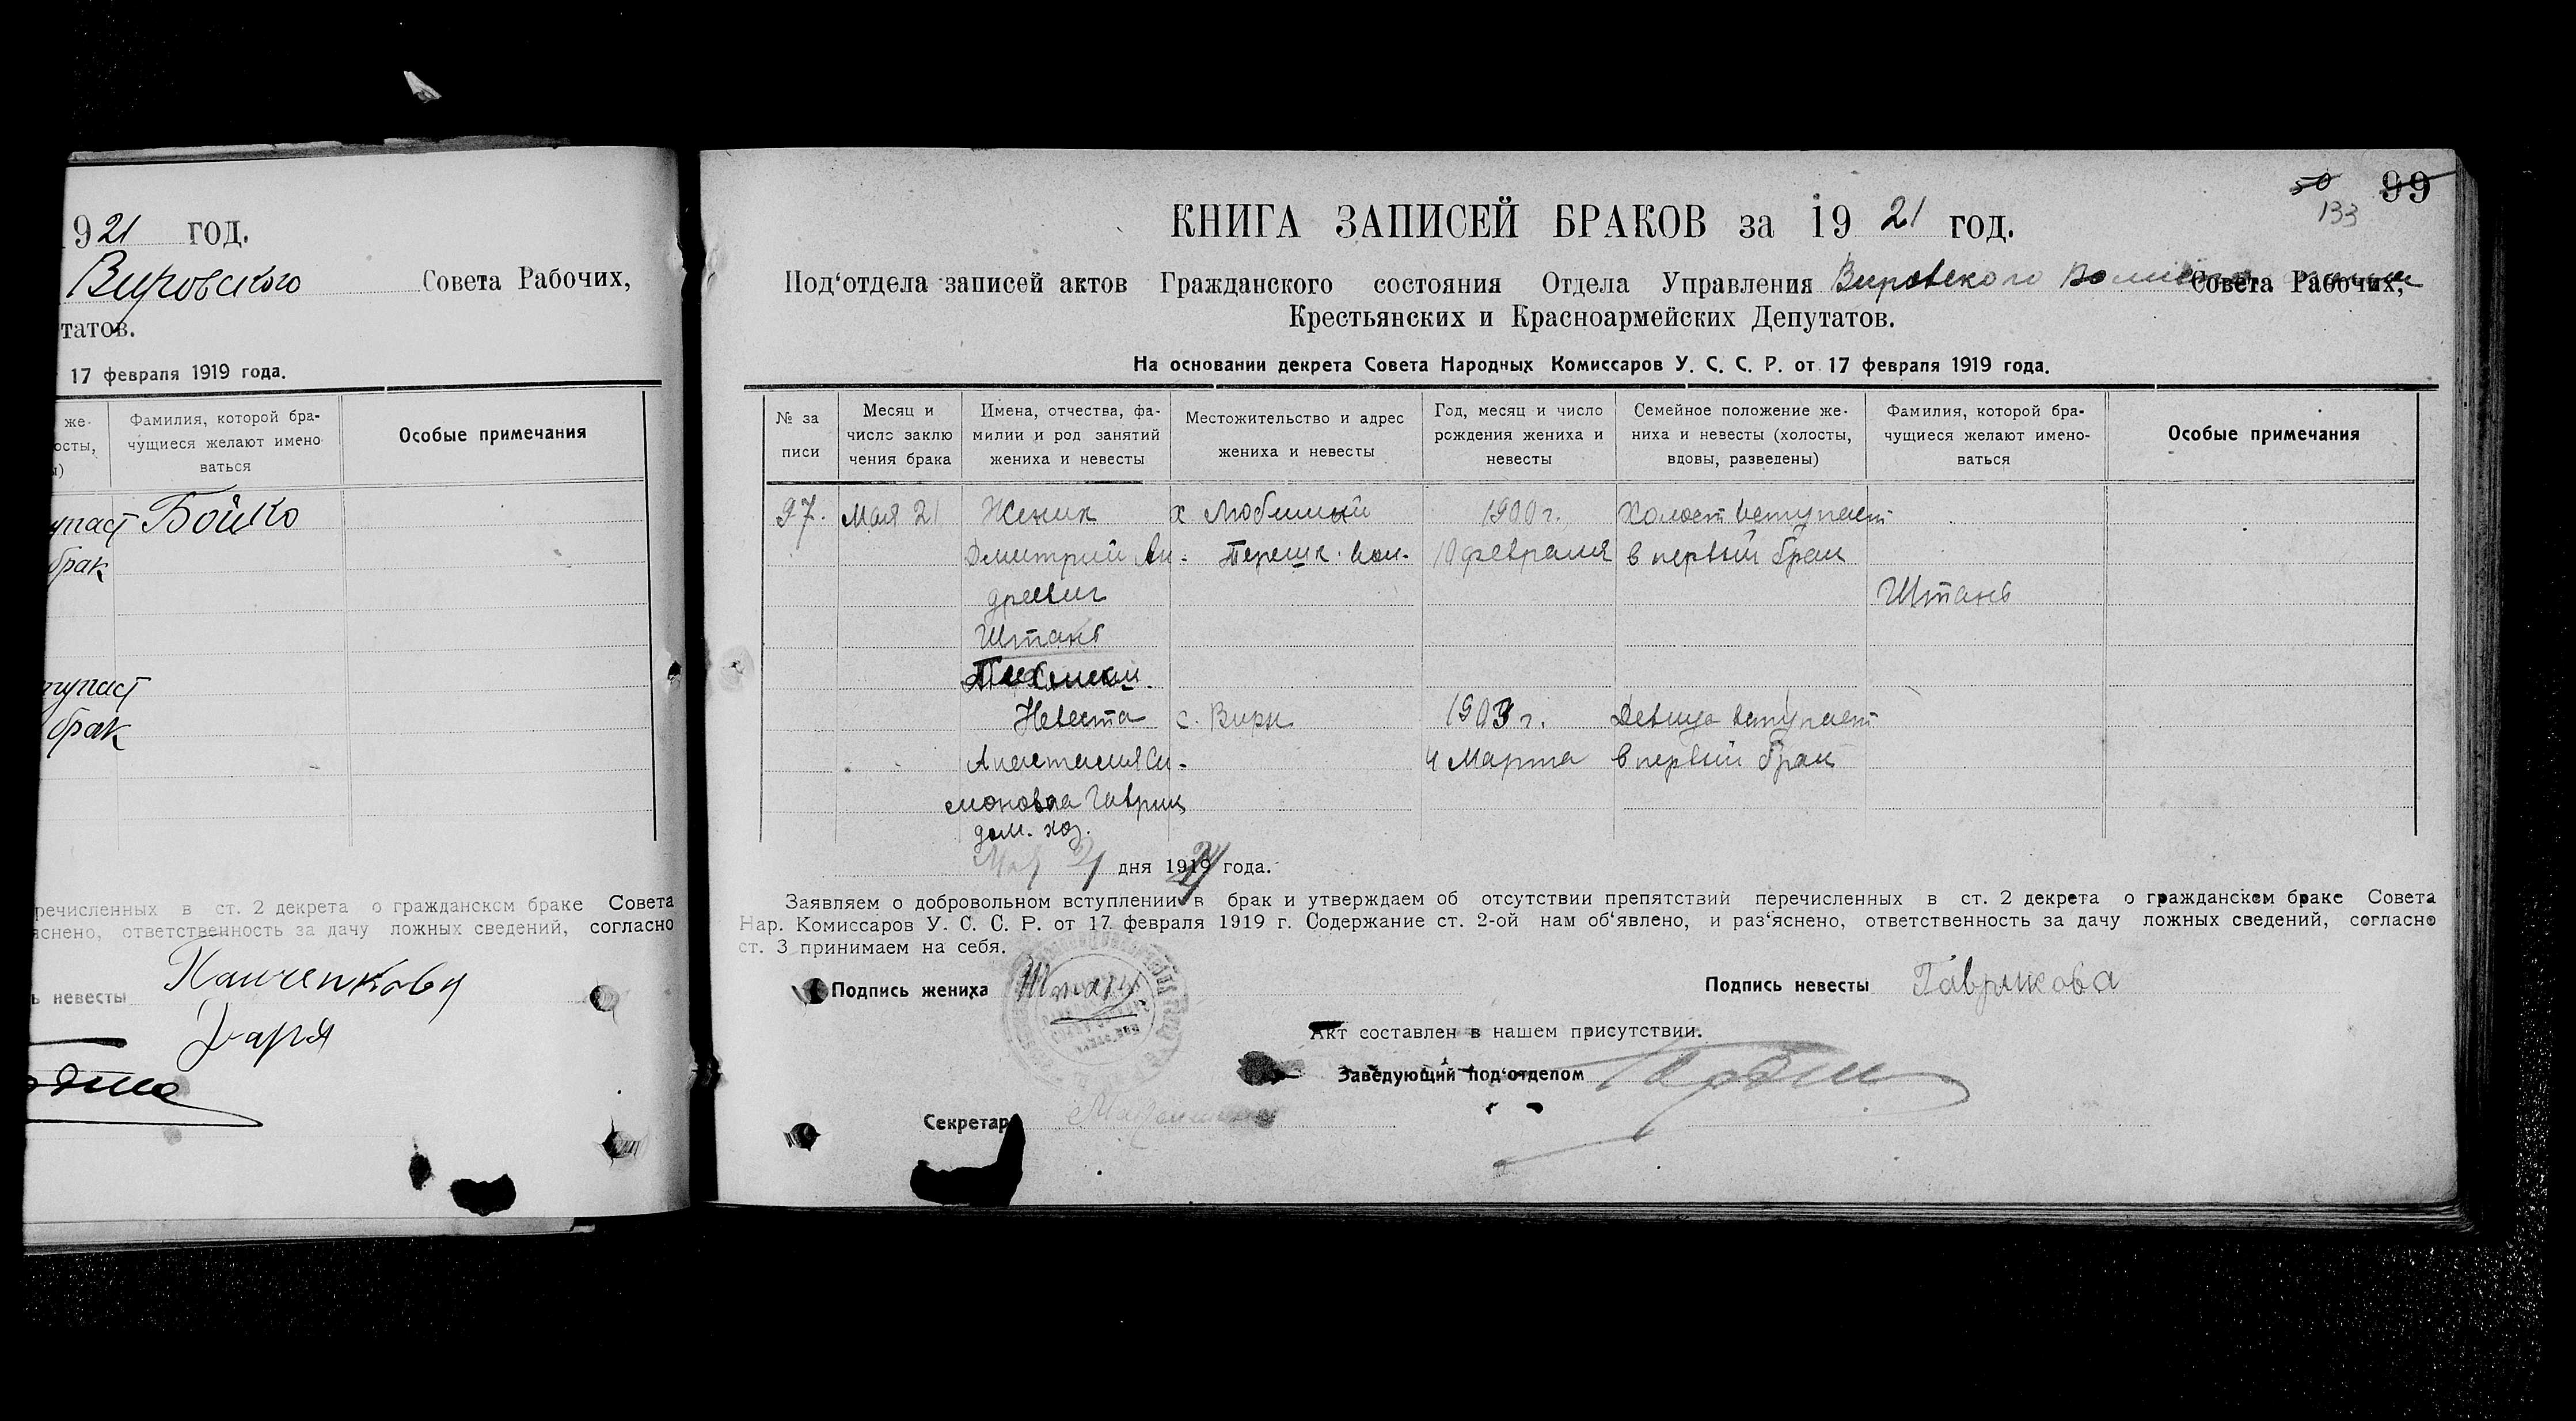 1921 год.
Вировского Совета Рабочих,
татов.
17 февраля 1919 года.
же-
осты,
Фамилия, которой бра-
чущиеся желают имено
ваться
Особые примечания
упаст Бойко
брак
тупаст
брак
речисленных в ст. 2 декрета о гражданском браке Совета
яснено, ответственность за дачу ложных сведений, согласно
ь невесты
Дарья
50 99
133
КНИГА ЗАПИСЕЙ БРАКОВ за 1921 год.
Под‘отдела записей актов Гражданского состояния Отдела Управления Вировского Совета Рабочих,
Крестьянских и Красноармейских Депутатов.
На основании декрета Совета Народных Комиссаров У. С. С. Р. от 17 февраля 1919 года.
№ за
писи
Месяц и
число заклю
чения брака
Имена, отчества, фа-
милии и род занятий
жениха и невесты
Местожительство и адрес
жениха и невесты
Год, месяц и число
рождения жениха и
невесты
Семейное положение же-
ниха и невесты (холосты,
вдовы, разведены)
Фамилия, которой бра-
чущиеся желают имено-
ваться
Особые примечания
97. Мая 21 Жених х Любимый 1900 г. Холост вступает
Дмитрий Ан- 10 февраля в первый брак
дреевич Штань
Штань
Невеста с. Виры 1903 г. Девица вступает
Анастасия Си- 4 Марта в первый брак
моновна Гаврик
дом. хоз.
Мая 21 дня 1921 года.
Заявляем о добровольном вступлении в брак и утверждаем об отсутствии препятствий перечисленных в ст. 2 декрета о гражданском браке Совета
Нар. Комиссаров У. С. С. Р. от 17 февраля 1919 г. Содержание ст. 2-ой нам об‘явлено, и раз‘яснено, ответственность за дачу ложных сведений, согласно
ст. 3 принимаем на себя.
Подпись жениха
Подпись невесты Гаврикова
Акт составлен в нашем присутствии.
Заведующий под‘отделом
Секретар